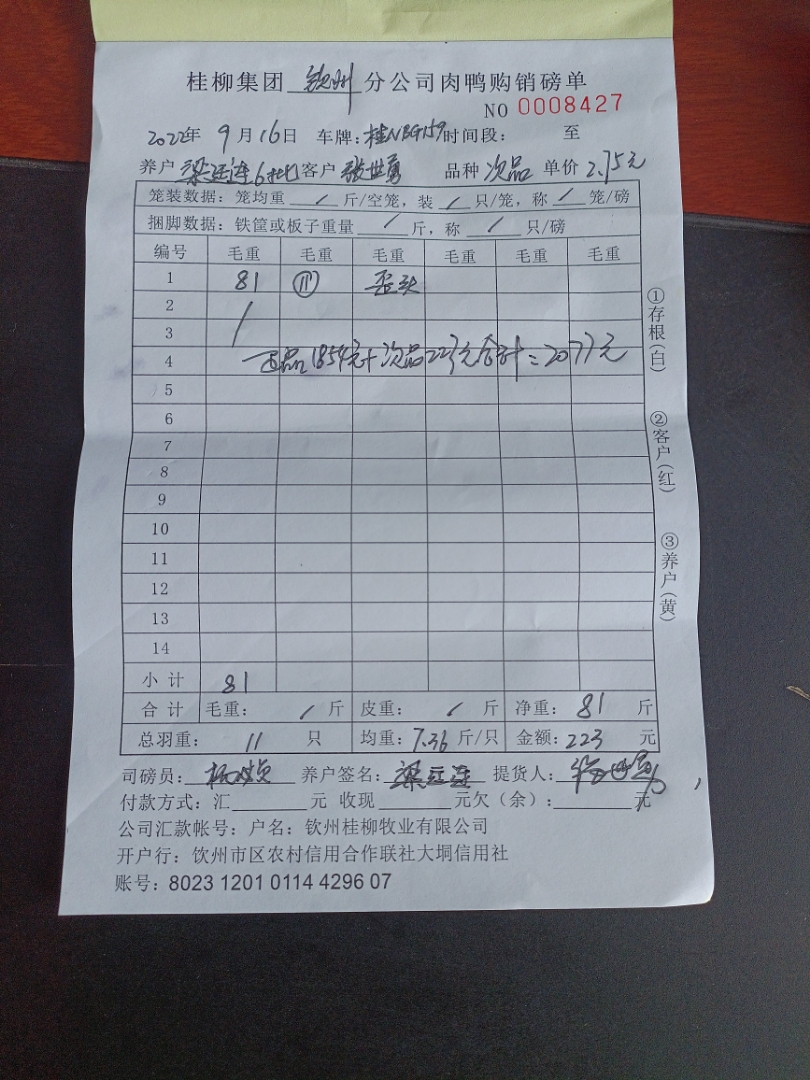 桂柳集团 钦州 分公司肉鸭购销磅单
NO 0008427
2022年 9月16日 车牌：桂NBG159 时间段： 至
养户 梁廷连6批 客户 张世勇 品种 次品 单价 2.75元
笼装数据：笼均重 / 斤/空笼，装 / 只/笼，称 / 笼/磅
捆脚数据：铁筐或板子重量 / 斤，称 / 只/磅
编号 毛重 毛重 毛重 毛重 毛重 毛重
1 81 11 歪头
2
3
4 正品1854元+次品223元合计=2077元
5
6
7
8
9
10
11
12
13
14
小计 81
合计 毛重： / 斤 皮重： / 斤 净重： 81 斤
总羽重： 11 只 均重：7.36 斤/只 金额：223 元
司磅员： 养户签名： 梁廷连 提货人： 张世勇
付款方式：汇 元 收现 元欠（余）： 元
公司汇款帐号：户名：钦州桂柳牧业有限公司
开户行：钦州市区农村信用合作联社大垌信用社
账号：8023 1201 0114 4296 07
①存根(白)
②客户(红)
③养户(黄)